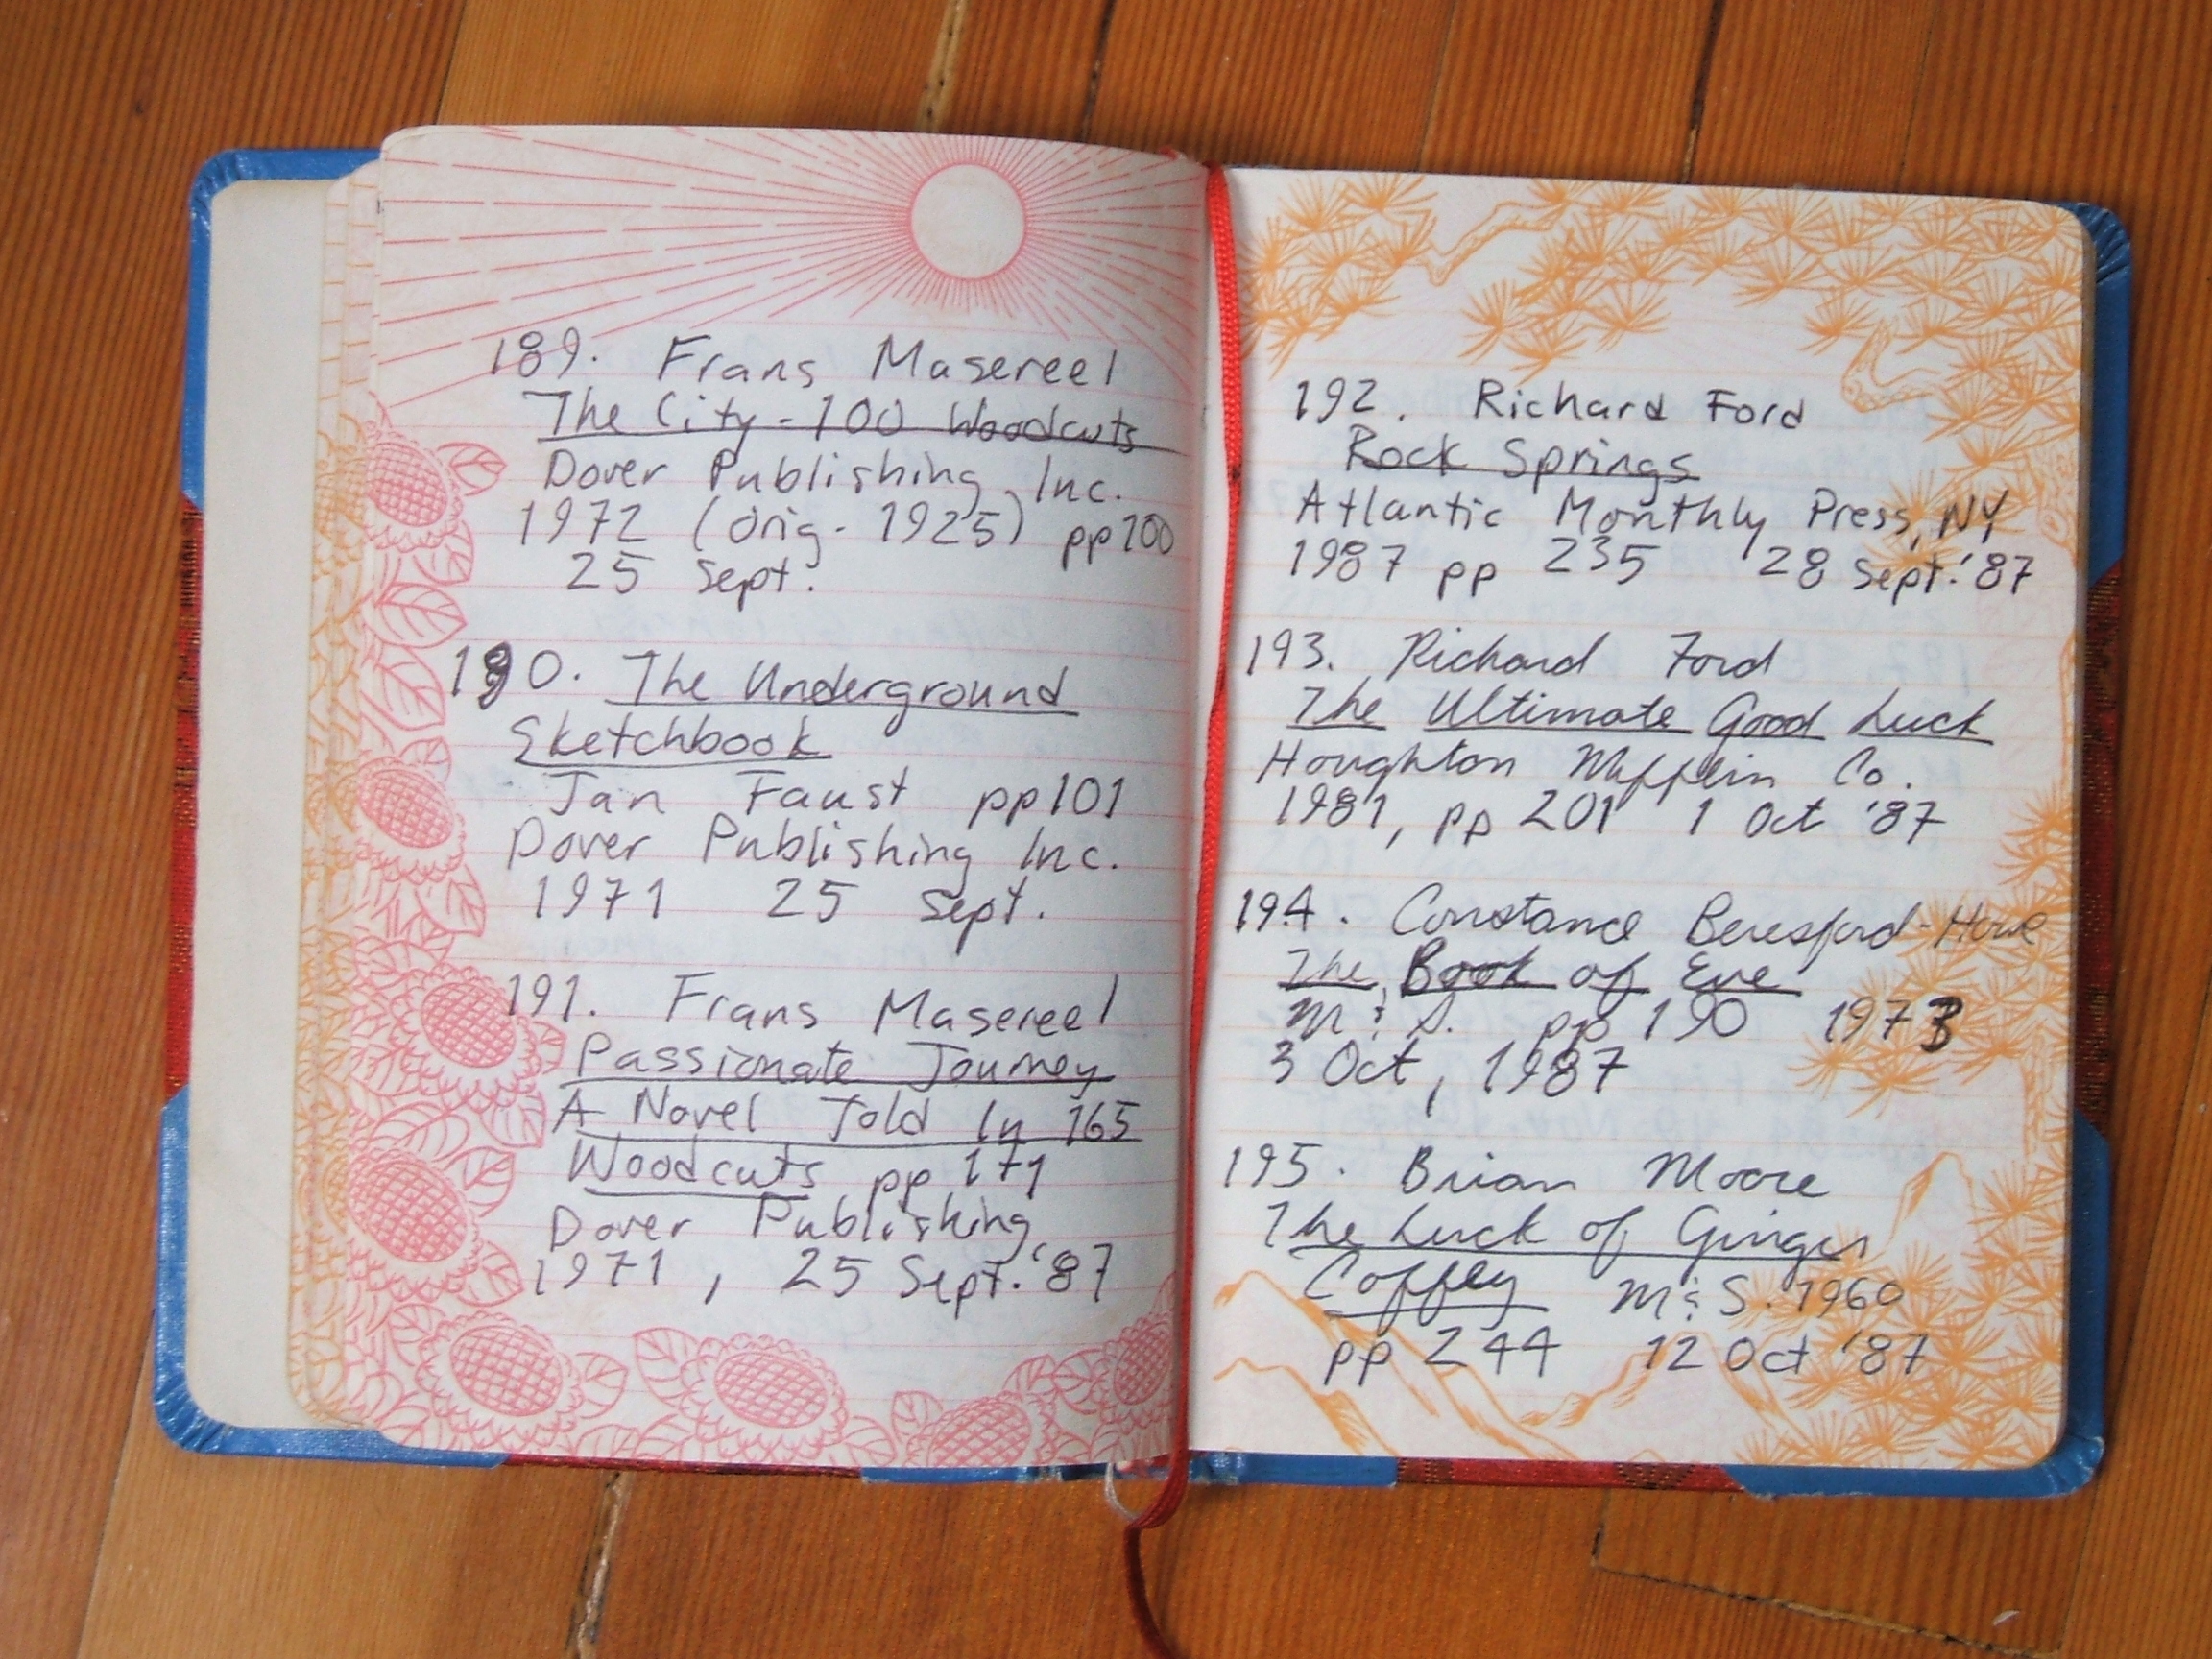 189. Frans Masereel
The City - 100 Woodcuts
Dover Publishing, Inc.
1972 (orig. 1925) pp 100
25 Sept.
190. The Underground
Sketchbook
Jan Faust pp 101
Dover Publishing Inc.
1971 25 Sept.
191. Frans Masereel
Passionate Journey
A Novel Told In 165
Woodcuts pp 171
Dover Publishing
1971, 25 Sept. '87
192. Richard Ford
Rock Springs
Atlantic Monthly Press, NY
1987 pp 235 28 Sept. '87
193. Richard Ford
The Ultimate Good Luck
Houghton Mifflin Co.
1981, pp 201 1 Oct '87
194. Constance Beresford-Howe
The Book of Eve
M & S. pp 190 1973
3 Oct, 1987
195. Brian Moore
The Luck of Ginger
Coffey M & S. 1960
pp 244 12 Oct '87